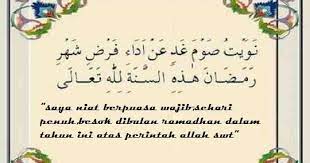 نَوَيْتُ صَوْمَ غَدٍ عَنْ اَدَاءِ فَرْضِ شَهْرِ
رَمَضَانَ هٰذِهِ السَّنَةِ لِلّٰهِ تَعَالَى
"saya niat berpuasa wajib,sehari
penuh,besok dibulan ramadhan dalam
tahun ini atas perintah allah swt"